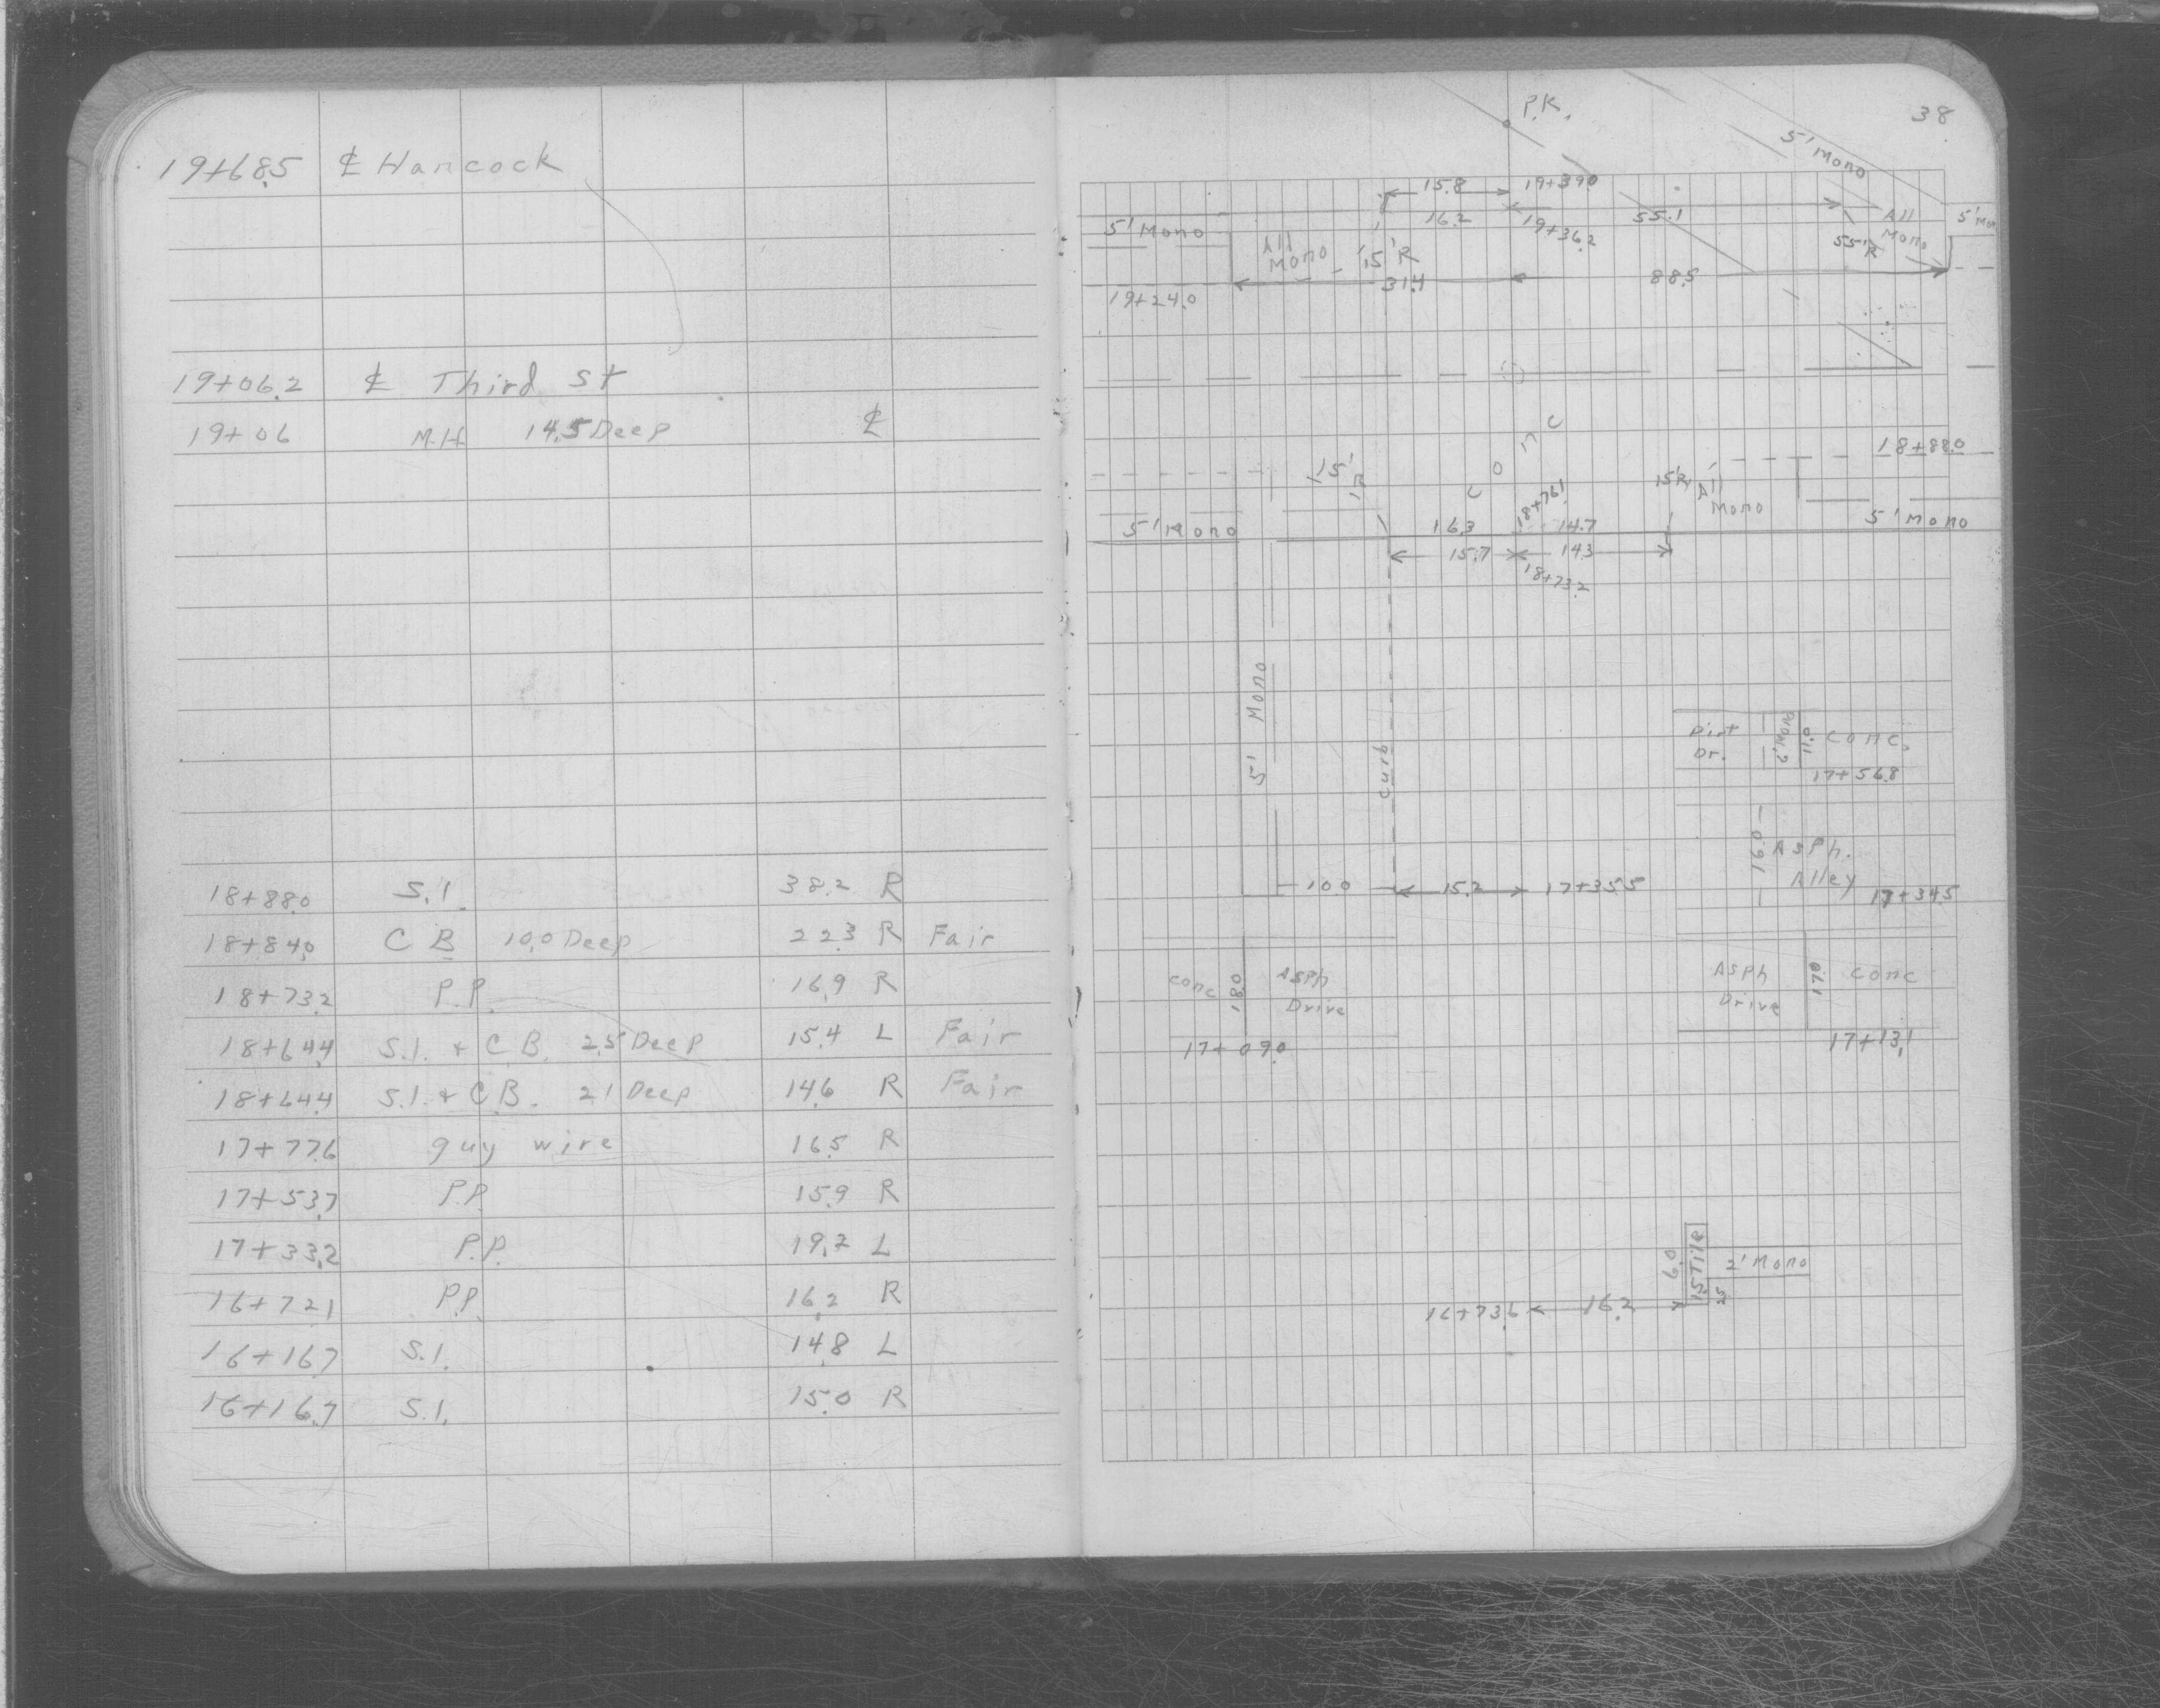 19+68.5 ℄ Hancock
19+06.2 ℄ Third St
19+06 M.H 14.5 Deep ℄
18+88.0 S.I. 38.2 R
18+84.0 C B 10.0 Deep 22.3 R Fair
18+73.2 P.P. 16.9 R
18+64.4 S.I. + C B. 2.5 Deep 15.4 L Fair
18+64.4 S.I. + C.B. 2.1 Deep 14.6 R Fair
17+77.6 guy wire 16.5 R
17+53.7 P.P. 15.9 R
17+33.2 P.P. 19.2 L
16+72.1 P.P. 16.2 R
16+16.7 S.I. 14.8 L
16+16.7 S.I. 15.0 R
38
P.K.
5' Mono
15.8 19+39.0
5' Mono 16.2 19+36.2 55.1 All Mono 5' Mon
All Mono 15'R 55'R
19+24.0 31.4 88.5
Conc
18+88.0
15'R 15'R, All Mono
18+76.1
5' Mono 16.3 14.7 5' Mono
15.7 14.3
18+73.2
5' Mono
Curb
Dirt Dr. 2' Mono 11.0 Conc.
17+56.8
16.0 Asph. Alley
10.0 15.2 17+35.5 17+34.5
Conc 18.0 Asph Drive
Asph Drive 17.0 Conc
17+09.0 17+13.1
6.0 15 Tile 2' Mono
16+73.6 16.2